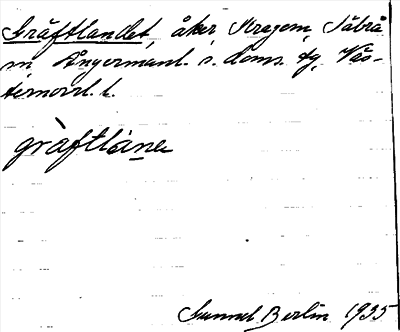 Gräftlandet, åker Kragom, Säbrå
sn Ångermanl. s. doms. tg, Väs-
ternorrl. l.
gräftlánne
Gunnel Berlin 1935